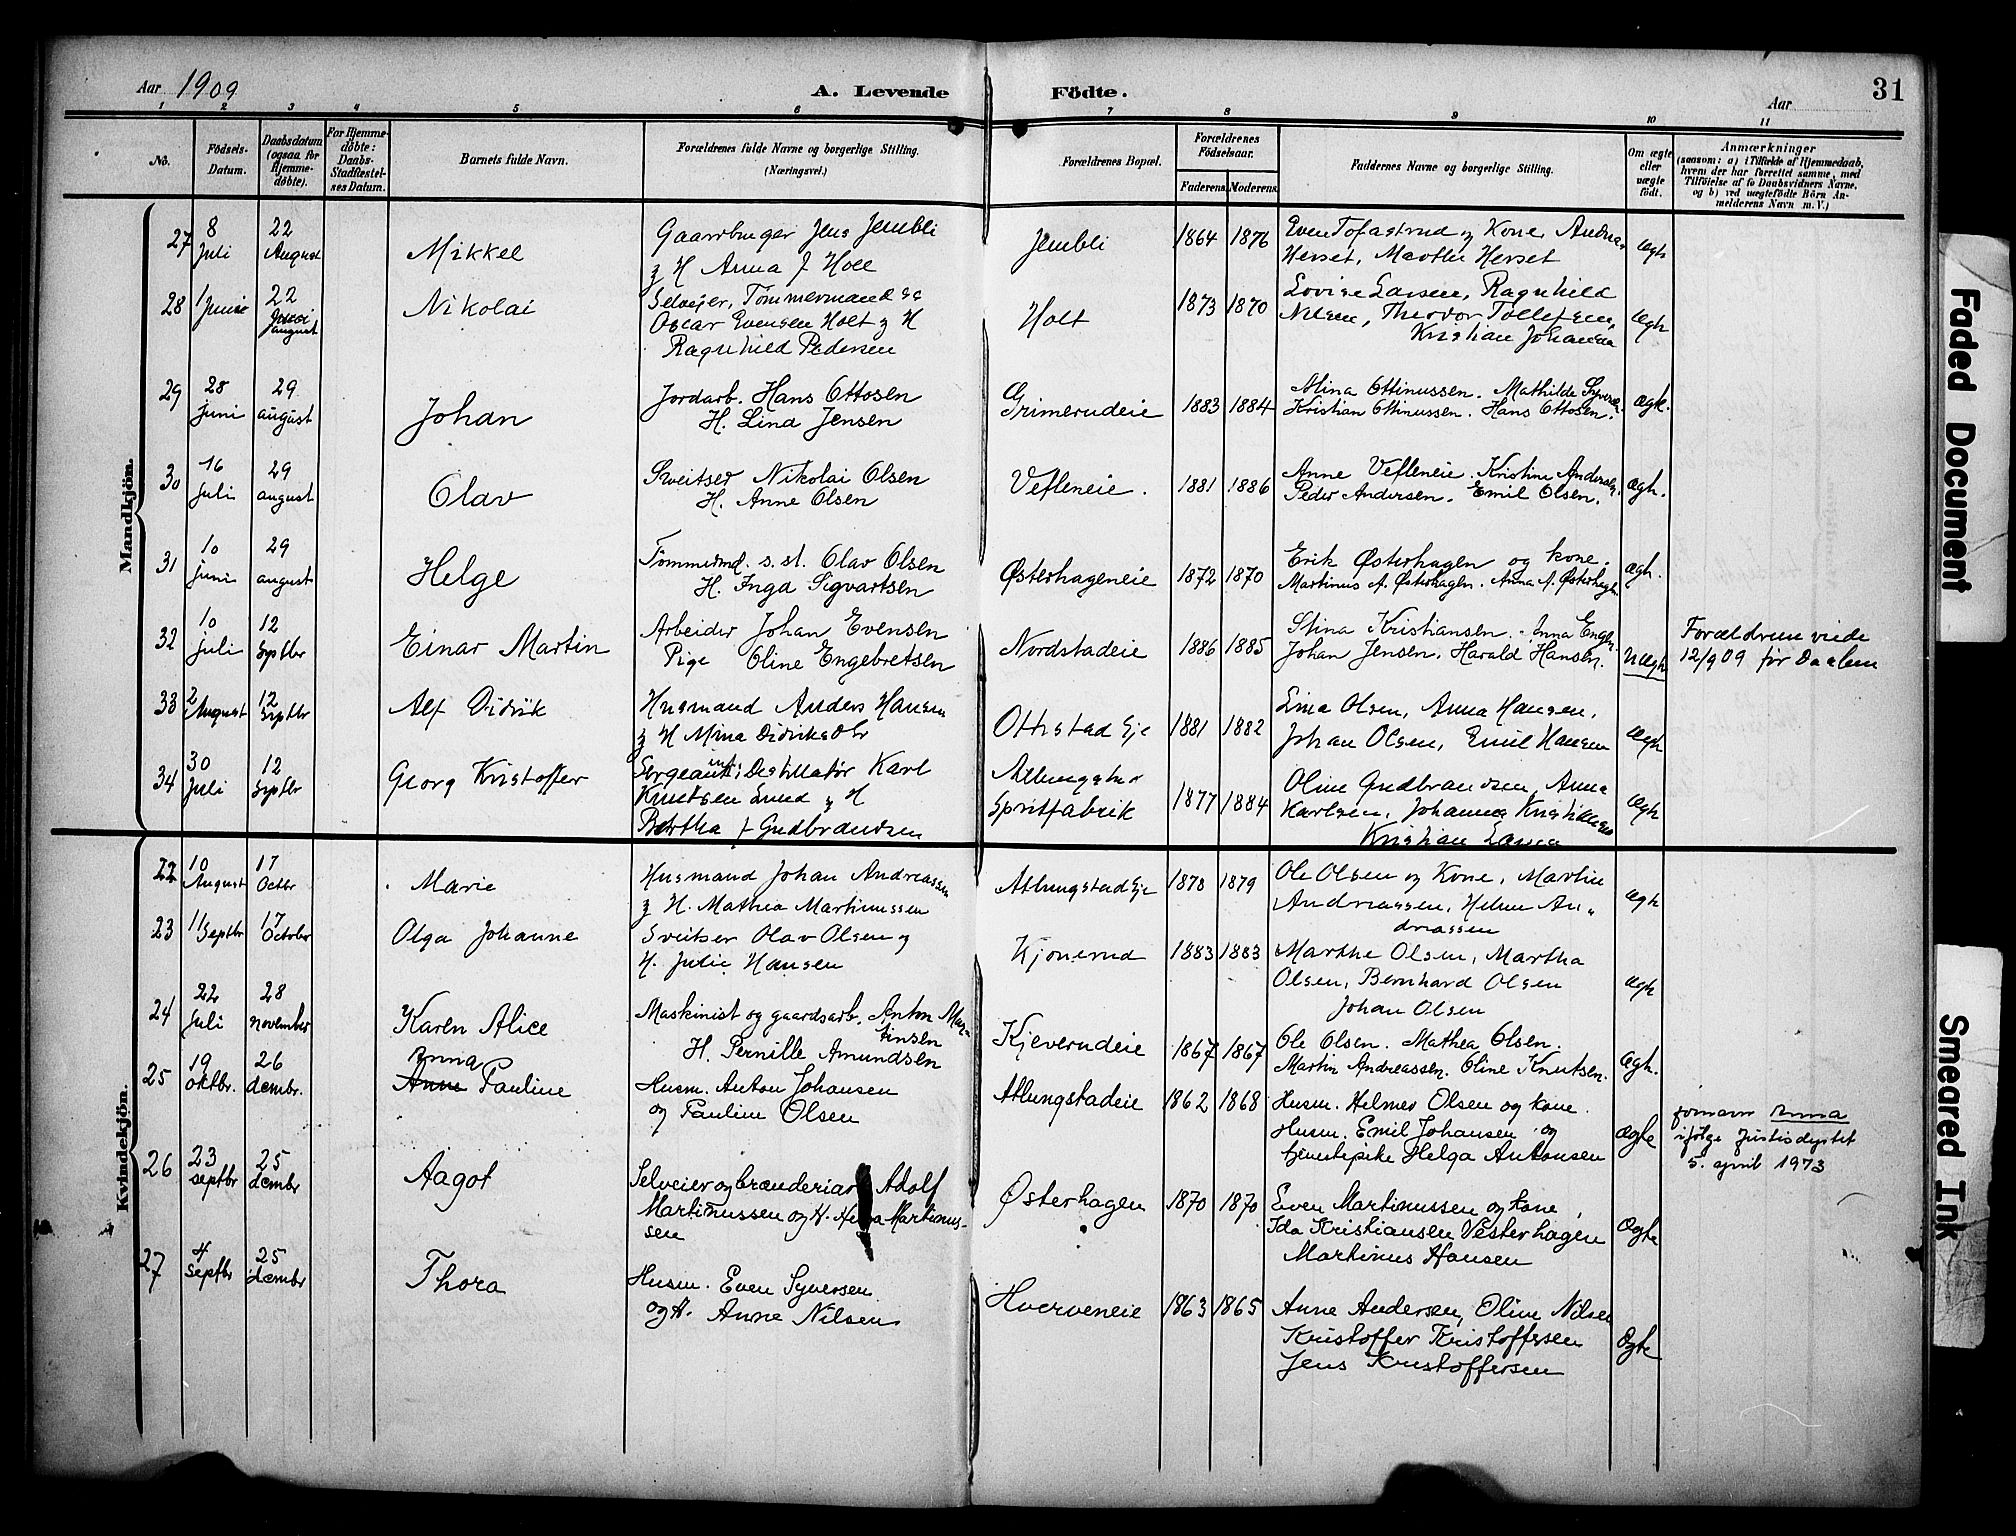 Aar 1909
A. Levende Födte.
Aar
31
1 2 3 4 5 6 7 8 9 10 11
No.
Födsels-Datum.
Daabsdatum (ogsaa for Hjemme-døbte).
For Hjemme-døbte: Daabs-Stadfæstel-ses Datum.
Barnets fulde Navn.
Forældrenes fulde Navne og borgerlige Stilling. (Næringsvei.)
Forældrenes Bopæl.
Forældrenes Födselsaar.
Faderens. Moderens.
Faddernes Navne og borgerlige Stilling.
Om ægte eller uægte födt.
Anmærkninger
(saasom: a) i Tilfælde af Hjemmedaab,
hvem der har forrettet samme, med
Tilföielse af to Daabsvidners Navne,
og b) ved uægtefödte Börn An-
melderens Navn m. V.)
Mandkjön.
27 8 Juli 22 August Mikkel Gaardbruger Jens Jembli
& H Anna J Holl Jembli 1864 1876 Even Tofastrud og Kone, Andreas
Herset, Marthe Herset Ægte
28 1 Juni 22 august Nikolai Selveier, Tømmermand
Oscar Evensen Holt & H
Ragnhild Pedersen Holt 1873 1870 Lovise Larsen, Ragnhild
Nilsen, Theodor Tollefsen,
Kristian Johansen Ægte
29 28 juni 29 august Johan Jordarb. Hans Ottosen
H. Lina Jensen Grimerudeie 1883 1884 Mina Ottinussen. Mathilde Syversen.
Kristian Ottinussen. Hans Ottosen. Ægte.
30 16 juli 29 august Olav Sveitser Nikolai Olsen
H. Anne Olsen Vefleneie. 1881 1886 Anne Vefleneie. Kristine Andersen.
Peder Andersen. Emil Olsen. Ægte.
31 10 juni 29 august Helge Tømmermd. s. st. Olav Olsen
H. Inga Sigvartsen Østerhageneie 1872 1870 Erik Østerhagen og kone,
Martinus A. Østerhagen. Anna A. Østerhagen Ægte.
32 10 juli 12 Septbr Einar Martin Arbeider Johan Evensen
Pige Oline Engebretsen Nordstadeie 1886 1885 Stina Kristiansen. Anna Engen
Johan Jensen. Harald Hansen. Uægte Forældrene viede
12/9 09 før Daaben
33 2 August 12 Septbr Alf Didrik Husmand Anders Hansen
& H Mina Didriksdtr Ottestad Eje 1881 1882 Lina Olsen, Anna Hansen,
Johan Olsen, Emil Hansen Ægte
34 30 Juli 12 Septbr Georg Kristoffer Sergeant, Destillatør Karl
Knutsen Lund & H
Bertha J Gudbrandsen Atlungstad
Spritfabrik 1877 1884 Oline Gudbrandsen, Anna
Karlsen, Johannes Kristiansen
Kristian Larsen Ægte
Kvindekjön.
22 10 August 17 Octbr Marie Husmand Johan Andreassen
& H. Mathea Martinussen Atlungstad Eje 1878 1879 Ole Olsen og Kone, Martin
Andreassen, Helene An-
dreassen Ægte
23 11 Septbr 17 October Olga Johanne Sveitser Olav Olsen og
H. Julie Hansen Kjonerud 1883 1883 Marthe Olsen, Martha
Olsen, Bernhard Olsen
Johan Olsen Ægte
24 22 juli 28 november Karen Alice Maskinist og gaardsarb. Anton Mar-
tinsen
H. Pernille Amundsen Kjeverudeie 1867 1867 Ole Olsen. Mathea Olsen.
Martin Andreassen. Oline Knutsen. Ægte.
25 19 oktbr. 26 dcembr. Anna
Anne Pauline Husm. Anton Johansen
og Pauline Olsen Atlungstadeie 1862 1868 Husm. Helmer Olsen og kone.
Husm. Emil Johansen og
tjenestepike Helga Antonsen Ægte fornavn Anna
ifølge Justisdeptet
5. april 1973
26 23 septbr 25 dcembr Aagot Selveier og brænderiarb. Adolf
Martinussen og H. Martinus-
sen Østerhagen 1870 1870 Even Martinussen og kone,
Ida Kristiansen Vesterhagen
Martinus Hansen Ægte
27 4 septbr 25 dcembr Thora Husm. Even Syversen
og H. Anne Nilsen Hverveneie 1863 1865 Anne Andersen, Oline Nilsen
Kristoffer Kristoffersen
Jens Kristoffersen Ægte
Faded Document
Smeared Ink